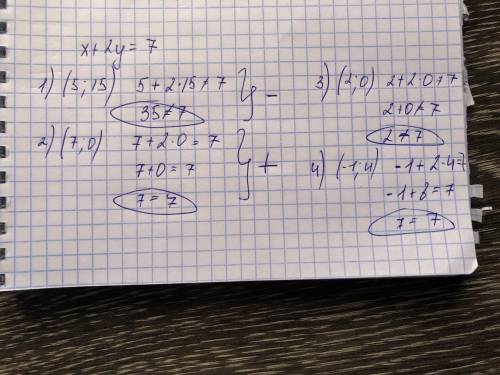 x+2y=7
1) (5; 15) 5+2·15≠7 } -
35≠7
2) (7; 0) 7+2·0=7 } +
7+0=7
7=7
3) (2; 0) 2+2·0≠7
2+0≠7
2≠7
4) (-1; 4) -1+2·4=7
-1+8=7
7=7